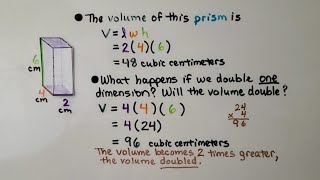 ● The volume of this prism is
V = l w h
= 2(4)(6)
= 48 cubic centimeters
6 cm
4 cm
2 cm
● What happens if we double one
dimension? Will the volume double?
V = 4(4)(6)
= 4(24)
= 96 cubic centimeters
24
x 4
96
The volume becomes 2 times greater,
the volume doubled.